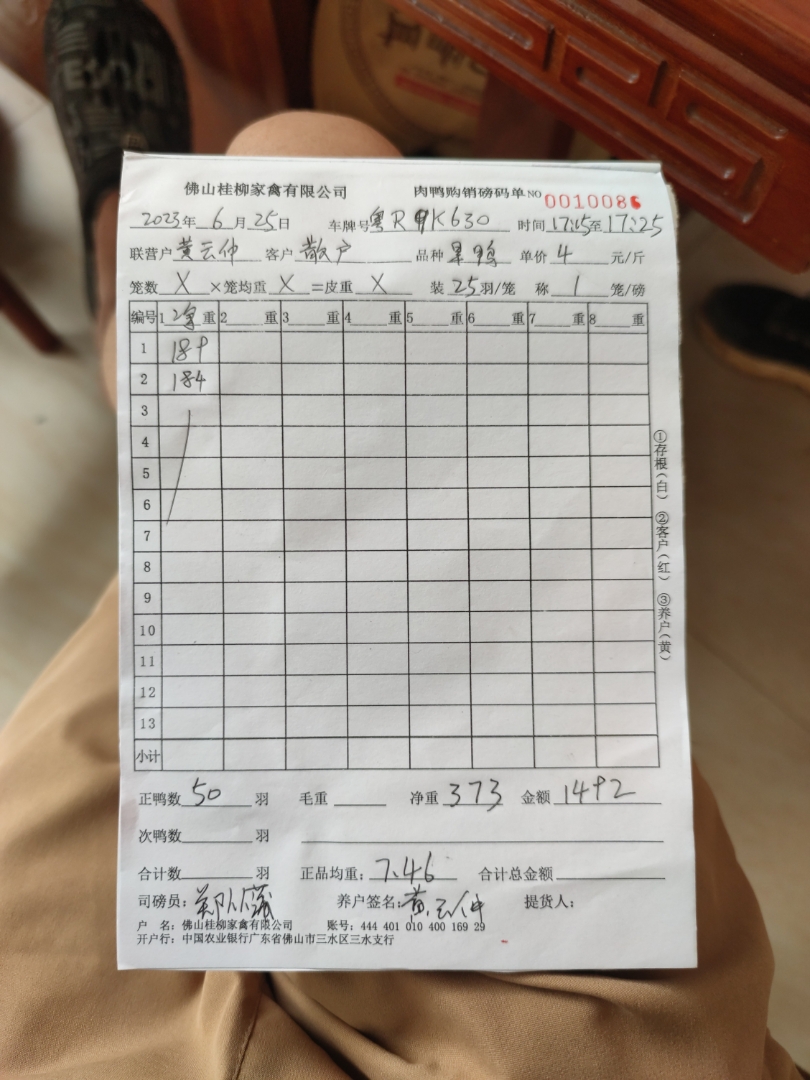 佛山桂柳家禽有限公司 肉鸭购销磅码单 NO 0010086
2023年 6月 25日 车牌号 粤R K630 时间 17:15至17:25
联营户 黄云仲 客户 散户 品种 果鸭 单价 4 元/斤
笼数 X ×笼均重 X =皮重 X 装 25 羽/笼 称 1 笼/磅
编号 1 净 重 2 重 3 重 4 重 5 重 6 重 7 重 8 重
1 189
2 184
3
4
5
6
7
8
9
10
11
12
13
小计
正鸭数 50 羽 毛重 净重 373 金额 1492
次鸭数 羽
合计数 羽 正品均重: 7.46 合计总金额
司磅员: 养户签名: 黄云仲 提货人:
户 名: 佛山桂柳家禽有限公司 账号: 444 401 010 400 169 29
开户行: 中国农业银行广东省佛山市三水区三水支行
①存根(白) ②客户(红) ③养户(黄)